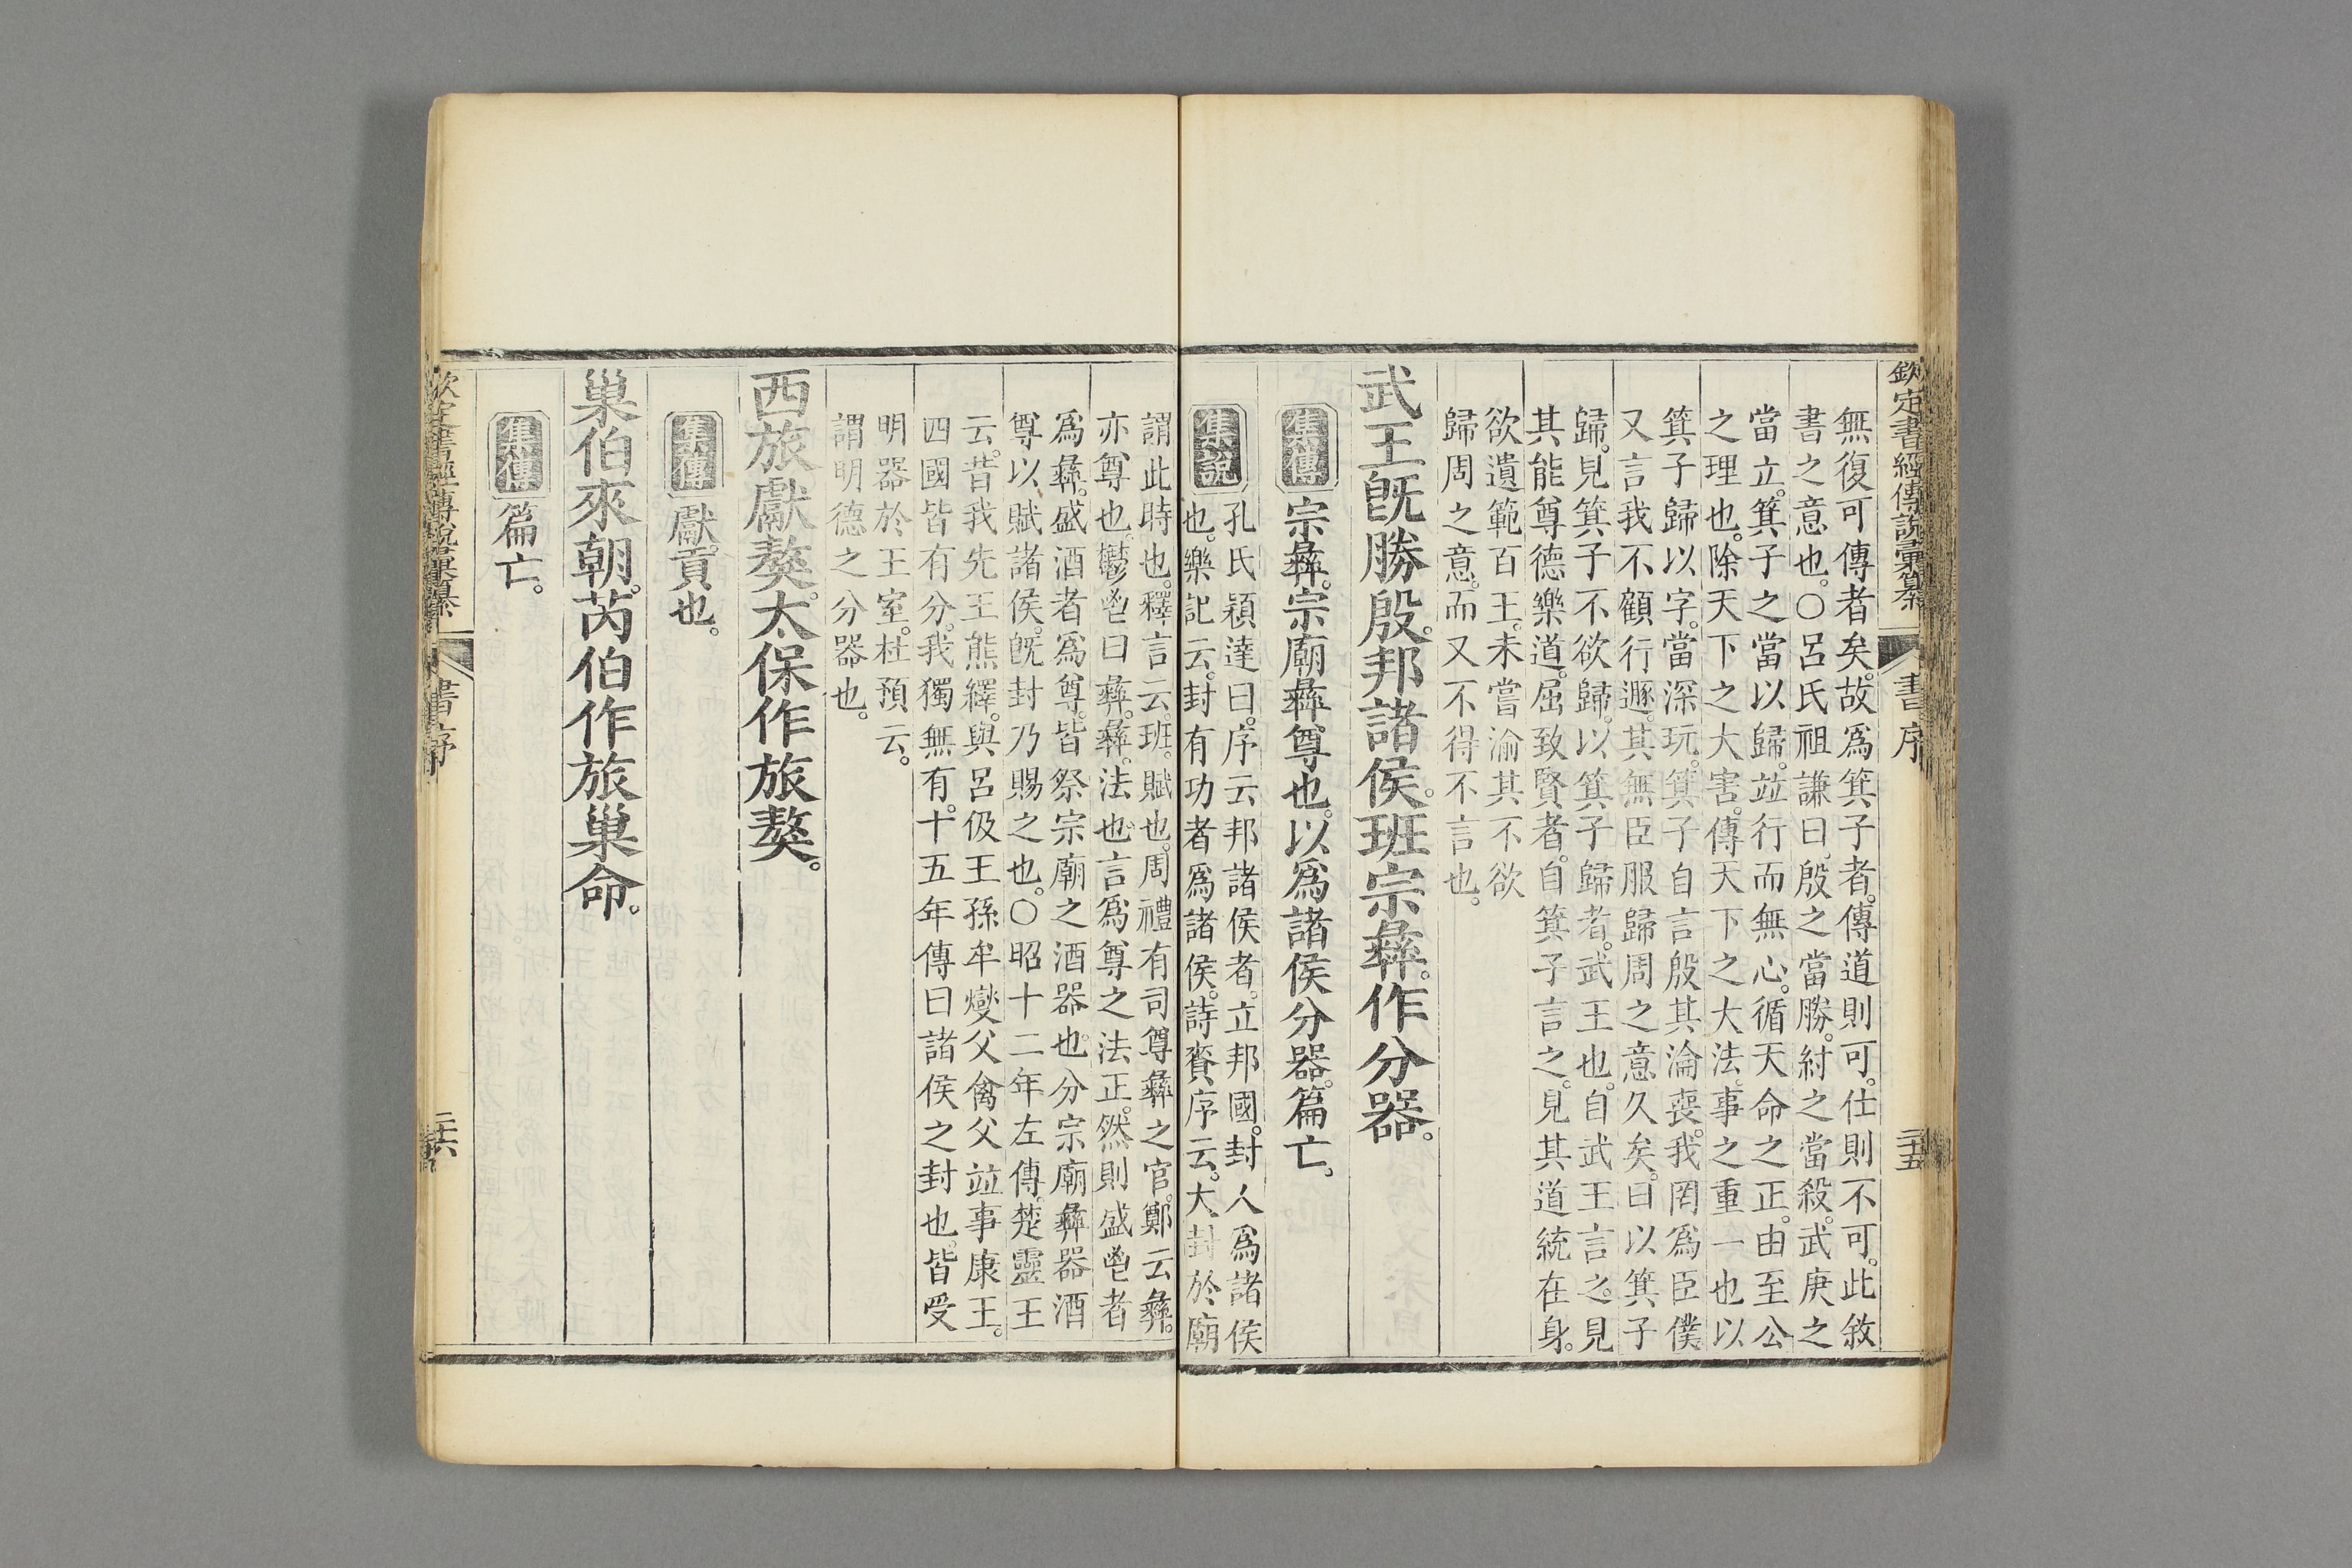 欽定書經傳說彙纂
書序
二十五
無復可傳者矣。故爲箕子者。傳道則可。仕則不可。此敘
書之意也。○呂氏祖謙曰。殷之當勝。紂之當殺。武庚之
當立。箕子之當以歸。竝行而無心。循天命之正。由至公
之理也。除天下之大害。傳天下之大法。事之重一也以
箕子歸以字。當深玩。箕子自言殷其淪喪。我罔爲臣僕。
又言我不顧行遯。其無臣服歸周之意久矣。曰以箕子
歸。見箕子不欲歸。以箕子歸者。武王也。自武王言之。見
其能尊德樂道。屈致賢者。自箕子言之。見其道統在身。
欲遺範百王。未嘗渝其不欲
歸周之意。而又不得不言也。
武王旣勝殷。邦諸侯。班宗彝。作分器。
集傳
宗彝。宗廟彝尊也。以爲諸侯分器。篇亡。
集說
孔氏穎達曰。序云邦諸侯者。立邦國。封人爲諸侯
也。樂記云。封有功者爲諸侯。詩賚序云。大封於廟
謂此時也。釋言云。班。賦也。周禮有司尊彝之官。鄭云彝。
亦尊也。鬱鬯曰彝。彝。法也。言爲尊之法正。然則盛鬯者
爲彝。盛酒者爲尊。皆祭宗廟之酒器也。分宗廟彝器酒
尊以賦諸侯。旣封乃賜之也。○昭十二年左傳。楚靈王
云。昔我先王熊繹。與呂伋王孫牟燮父禽父竝事康王。
四國皆有分。我獨無有。十五年傳曰諸侯之封也。皆受
明器於王室。杜預云。
謂明德之分器也。
西旅獻獒。太保作旅獒。
集傳
獻。貢也。
巢伯來朝。芮伯作旅巢命。
集傳
篇亡。
欽定書經傳說彙纂
書序
二十六